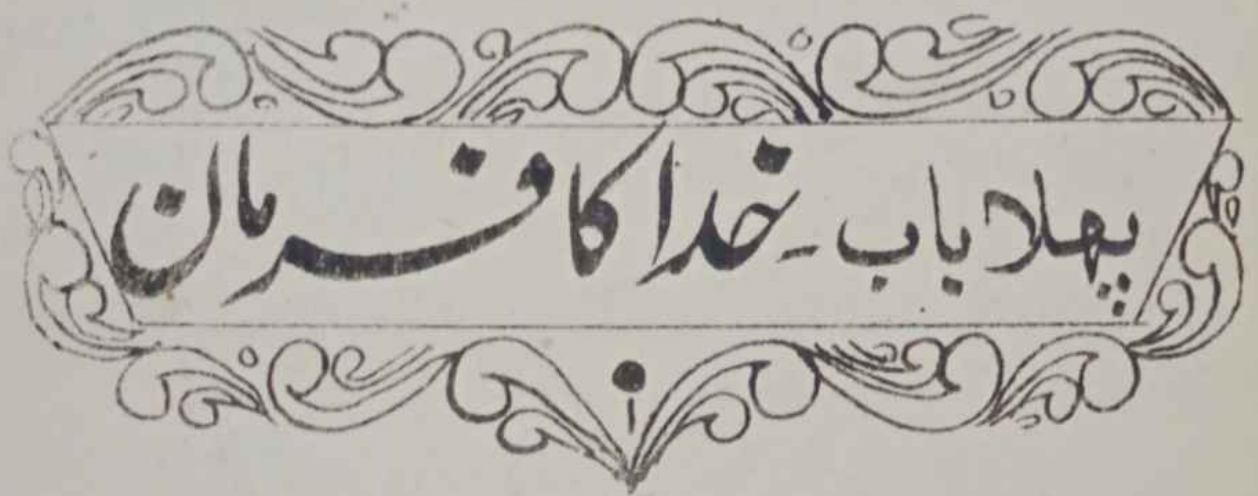 پہلا باب ۔ خدا کا فرمان